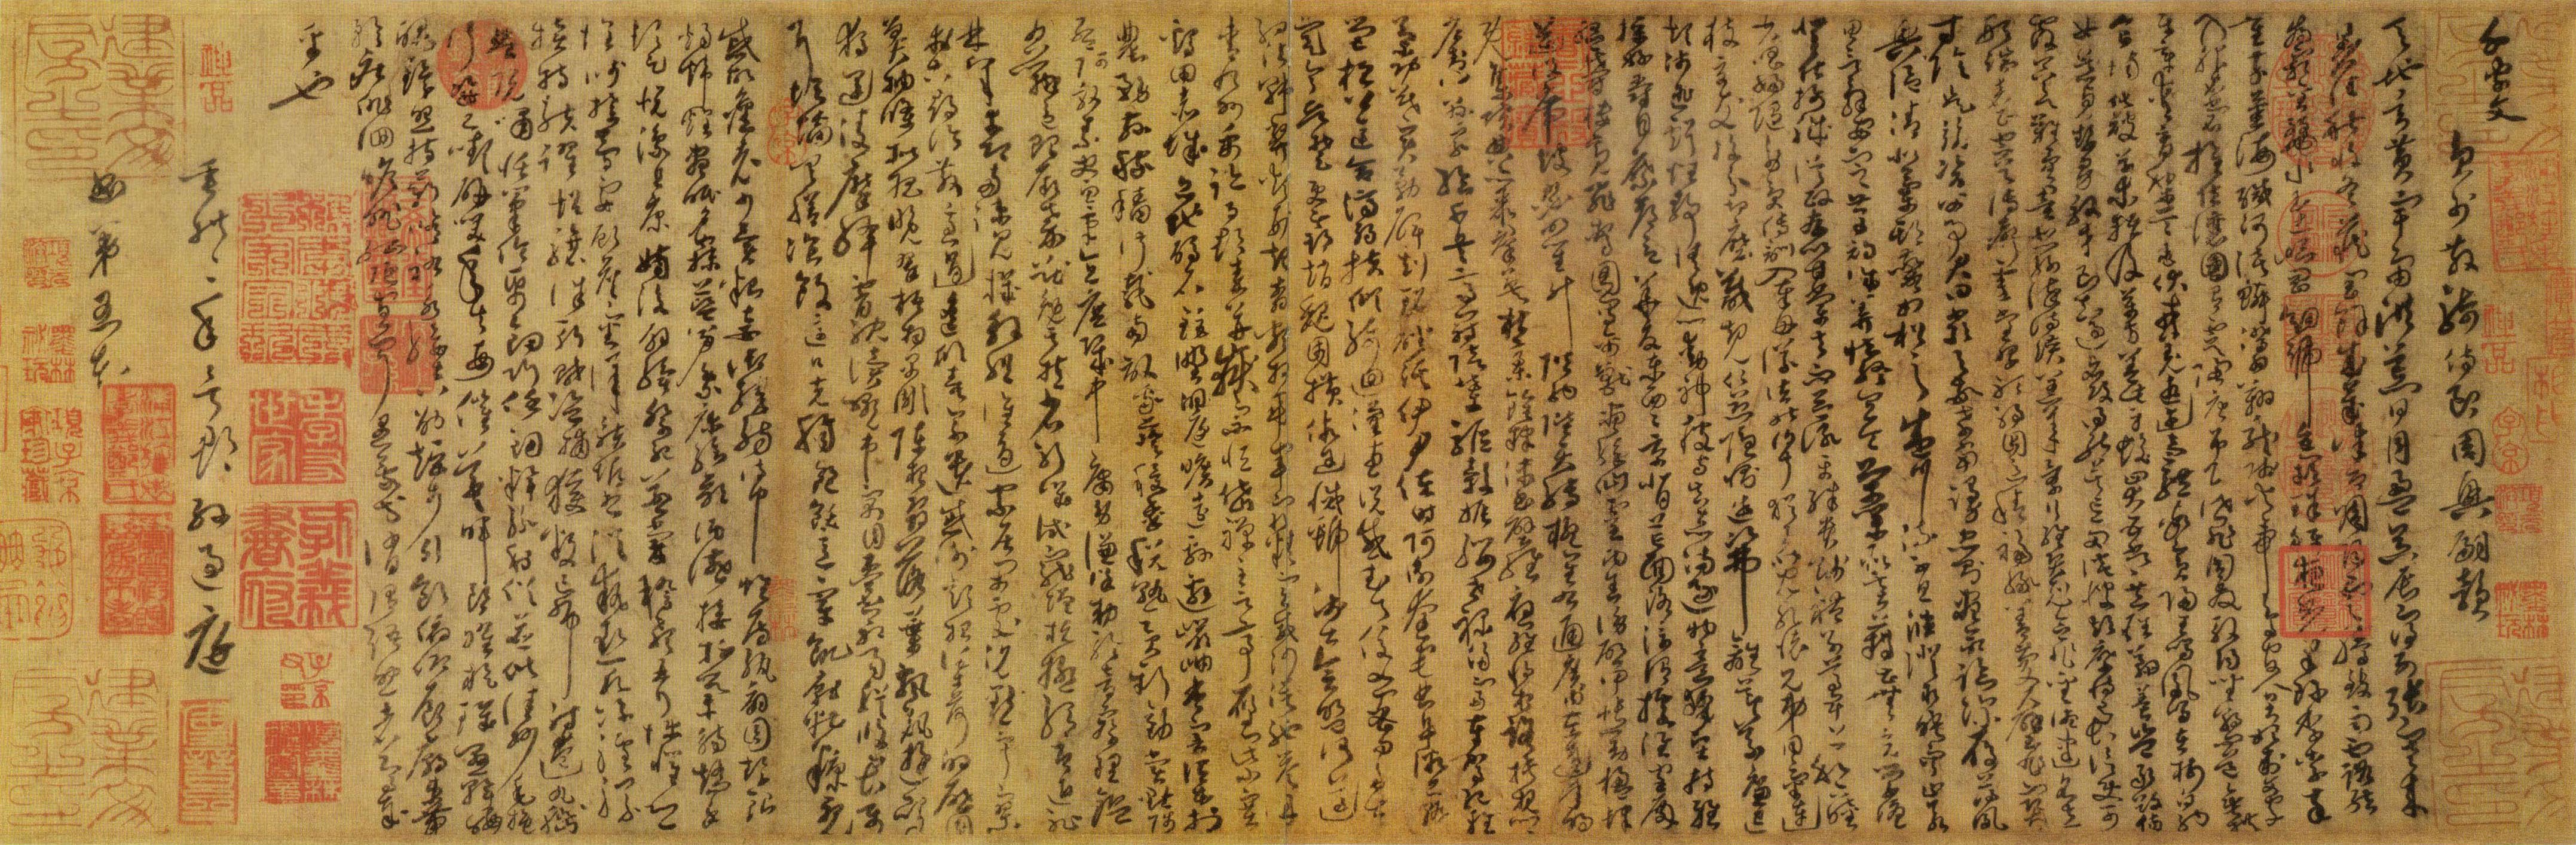 千字文 員外散騎侍郎周興嗣韻
天地玄黃宇宙洪荒日月盈昃辰宿列張寒來
暑往秋收冬藏閏餘成歲律召調陽雲騰致雨露結
為霜金生麗水玉出崑岡劍號巨闕珠稱夜光果珍李柰菜
重芥薑海鹹河淡鱗潛羽翔龍師火帝鳥官人皇始制文字
乃服衣裳推位讓國有虞陶唐弔民伐罪周發殷湯坐朝問道垂拱
平章愛育黎首臣伏戎羌遐邇壹體率賓歸王鳴鳳在樹白駒
食場化被草木賴及萬方蓋此身髮四大五常恭惟鞠養豈敢毀傷
女慕貞絜男效才良知過必改得能莫忘罔談彼短靡恃己長信使可
覆器欲難量墨悲絲染詩讚羔羊景行維賢克念作聖德建名立
形端表正空谷傳聲虛堂習聽禍因惡積福緣善慶尺璧非寶
寸陰是競資父事君曰嚴與敬孝當竭力忠則盡命臨深履薄夙
興溫凊似蘭斯馨如松之盛川流不息淵澄取映容止若
思言辭安定篤初誠美慎終宜令榮業所基藉甚無竟學優
登仕攝職從政存以甘棠去而益詠樂殊貴賤禮別尊卑上和下睦
夫唱婦隨外受傅訓入奉母儀諸姑伯叔猶子比兒孔懷兄弟同氣連
枝交友投分切磨箴規仁慈隱惻造次弗離節義廉退
顛沛匪虧性靜情逸心動神疲守真志滿逐物意移堅持雅
操好爵自縻都邑華夏東西二京背芒面洛浮渭據涇宮殿
盤鬱樓觀飛驚圖寫禽獸畫綵仙靈丙舍傍啟甲帳對楹肆
筵設席鼓瑟吹笙升階納陛弁轉疑星右通廣內左達承明
既集墳典亦聚群英杜稾鍾隸漆書壁經府羅將相路俠槐卿
戶封八縣家給千兵高冠陪輦驅轂振纓世祿侈富車駕肥輕
策功茂實勒碑刻銘磻溪伊尹佐時阿衡奄宅曲阜微旦孰
營桓公匡合濟弱扶傾綺迴漢惠說感武丁俊乂密勿多士
寔寧晉楚更霸趙魏困橫假途滅虢踐土會盟何遵
約法韓弊煩刑起翦頗牧用軍最精宣威沙漠馳譽丹
青九州禹跡百郡秦并嶽宗恒岱禪主云亭雁門紫塞
雞田赤城昆池碣石鉅野洞庭曠遠綿邈巖岫杳冥治本於
農務茲稼穡俶載南畝我藝黍稷稅熟貢新勸賞黜陟
孟軻敦素史魚秉直庶幾中庸勞謙謹敕聆音察理鑑
貌辨色貽厥嘉猷勉其祗植省躬譏誡寵增抗極殆辱近恥
林皋幸即兩疏見機解組誰逼索居閑處沉默寂寥
求古尋論散慮逍遙欣奏累遣慼謝歡招渠荷的歷園
莽抽條枇杷晚翠梧桐早彫陳根委翳落葉飄颻游鵾
獨運凌摩絳霄耽讀翫市寓目囊箱易輶攸畏屬耳
垣牆具膳飡飯適口充腸飽飫烹宰飢厭糟糠親
戚故舊老少異糧妾御績紡侍巾帷房紈扇圓潔銀
燭煒煌晝眠夕寐藍笋象床絃歌酒讌接杯舉觴矯手
頓足悅豫且康嫡後嗣續祭祀蒸嘗稽顙再拜悚懼恐
惶牋牒簡要顧答審詳骸垢想浴執熱願涼驢騾
犢特駭躍超驤誅斬賊盜捕獲叛亡布射遼丸嵇
琴阮嘯恬筆倫紙鈞巧任釣釋紛利俗並皆佳妙毛施
淑姿工顰妍笑年矢每催曦暉朗曜璇璣懸斡晦
魄環照指薪修祜永綏吉劭矩步引領俯仰廊廟束帶
矜莊徘徊瞻眺孤陋寡聞愚蒙等誚謂語助者焉哉
乎也
垂拱二年 過庭
第五本